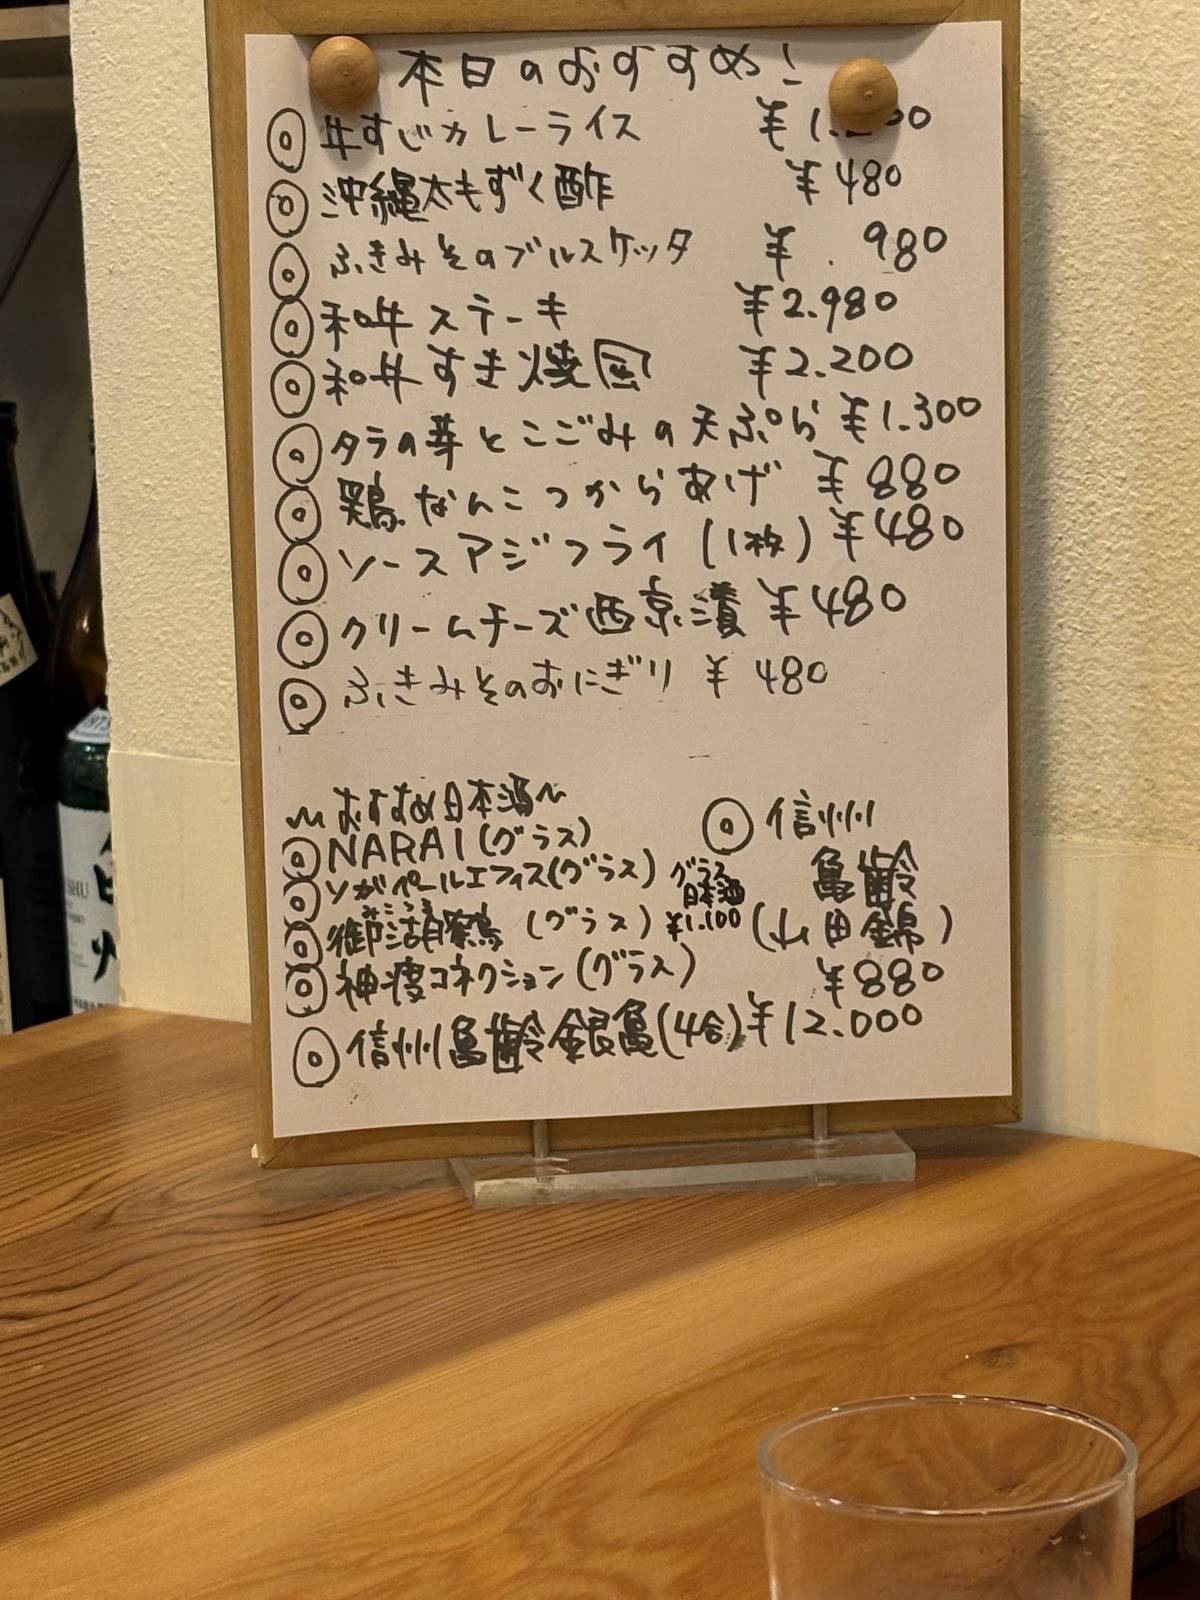 本日のおすすめ!
◎牛すじカレーライス ¥1.200
◎沖縄太もずく酢 ¥480
◎ふきみそのブルスケッタ ¥.980
◎和牛ステーキ ¥2.980
◎和牛すき焼風 ¥2.200
◎タラの芽とこごみの天ぷら ¥1.300
◎鶏なんこつからあげ ¥880
◎ソースアジフライ(1枚) ¥480
◎クリームチーズ西京漬 ¥480
◎ふきみそのおにぎり ¥480
〜おすすめ日本酒〜
◎NARAI(グラス)
◎ソガペールエフィス(グラス)
みこつる
◎御湖鶴(グラス)
◎神渡コネクション(グラス)
グラス
日本酒
¥1.100
◎信州
亀齢
(山田錦)
¥880
◎信州亀齢銀亀(4合) ¥12.000